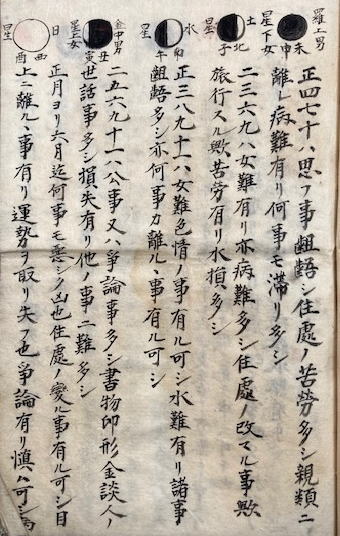 羅上男
未申
星下女
正四七十ハ思フ事齟齬シ住處ノ苦勞多シ親類ニ
離レ病難有リ何事モ滞リ多シ
土
北
子
星
二三六九ハ女難有リ亦病難多シ住處ノ改マル事歟
旅行スル歟苦勞有リ水損多シ
水
午
星
正三八九十一ハ女難色情ノ事有ル可シ水難有リ諸事
齟齬多シ亦何事カ離ルヽ事有ル可シ
金中男
丑寅
星上女
二五六九十一ハ公事又ハ爭論事多シ書物印形金談人ノ
世話事多シ損失有リ他ノ事ニ難多シ
日
西
酉
星
正月ヨリ六月迄何事モ悪シク凶也住處ノ變ル事有ル可シ目
上ニ離ルヽ事有リ運勢ヲ取リ失フ也爭論有リ慎ム可シ